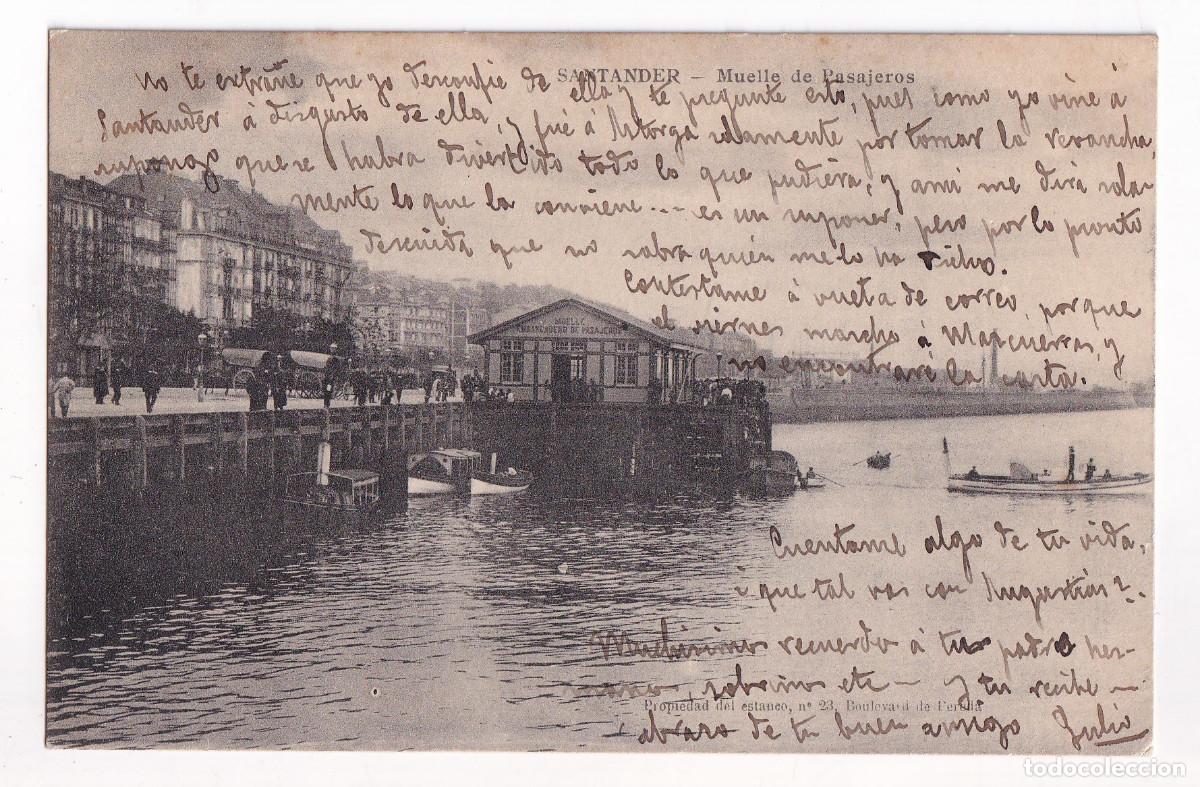 SANTANDER – Muelle de Pasajeros
No te extrañe que yo desconfie de ella y te pregunte esto, pues como yo vine á
Santander á disgusto de ella, y fué á Astorga solamente por tomar la revancha,
supongo que se habra divertido todo lo que pudiera, y ami me dira sola-
mente lo que la conviene.... es un suponer, pero por lo pronto
descuida que no sabra quién me lo ha dicho.
Contestame á vuelta de correo, porque
el viernes marcho á Mazcuerras, y
no encontraré la carta.
MUELLE
EMBARCADERO DE PASAJEROS
Cuentame algo de tu vida,
¿que tal vas con Angustias?.
Muchisimos recuerdos á tus padre her-
manos, sobrinos etc – y tu recibe –
abrazo de tu buen amigo Julio
Propiedad del estanco, nº 23, Boulevard de Pereda
todocoleccion